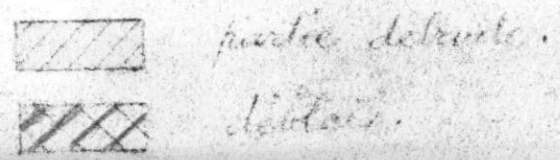 partie detruite.
déblais.